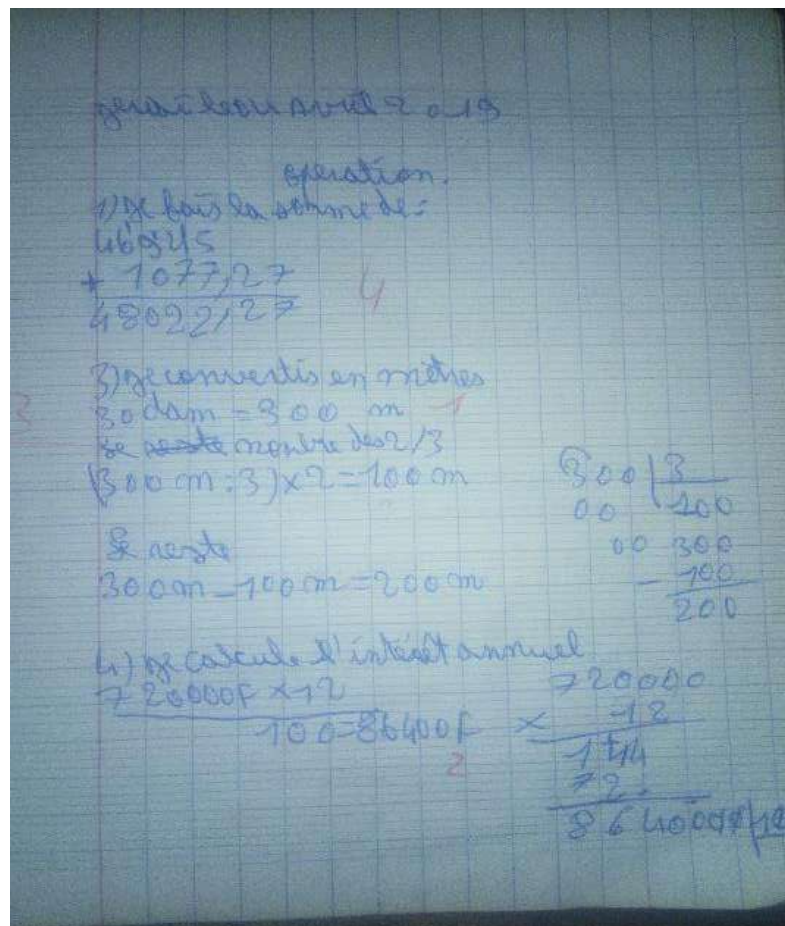 Avril 2019
opération.
1) Je fais la somme de:
46945
+ 1077,27
48022,27
4
3) Je convertis en mètres
30 dam = 300 m 1
Le reste nombre des 2/3
(300 m : 3) x 2 = 100 m
300 3
00 100
00 300
- 100
200
Le reste
300 m - 100 m = 200 m
4) Je calcule l'intérêt annuel
720000F x 12
100 = 86400F
2
720000
x 12
144
72.